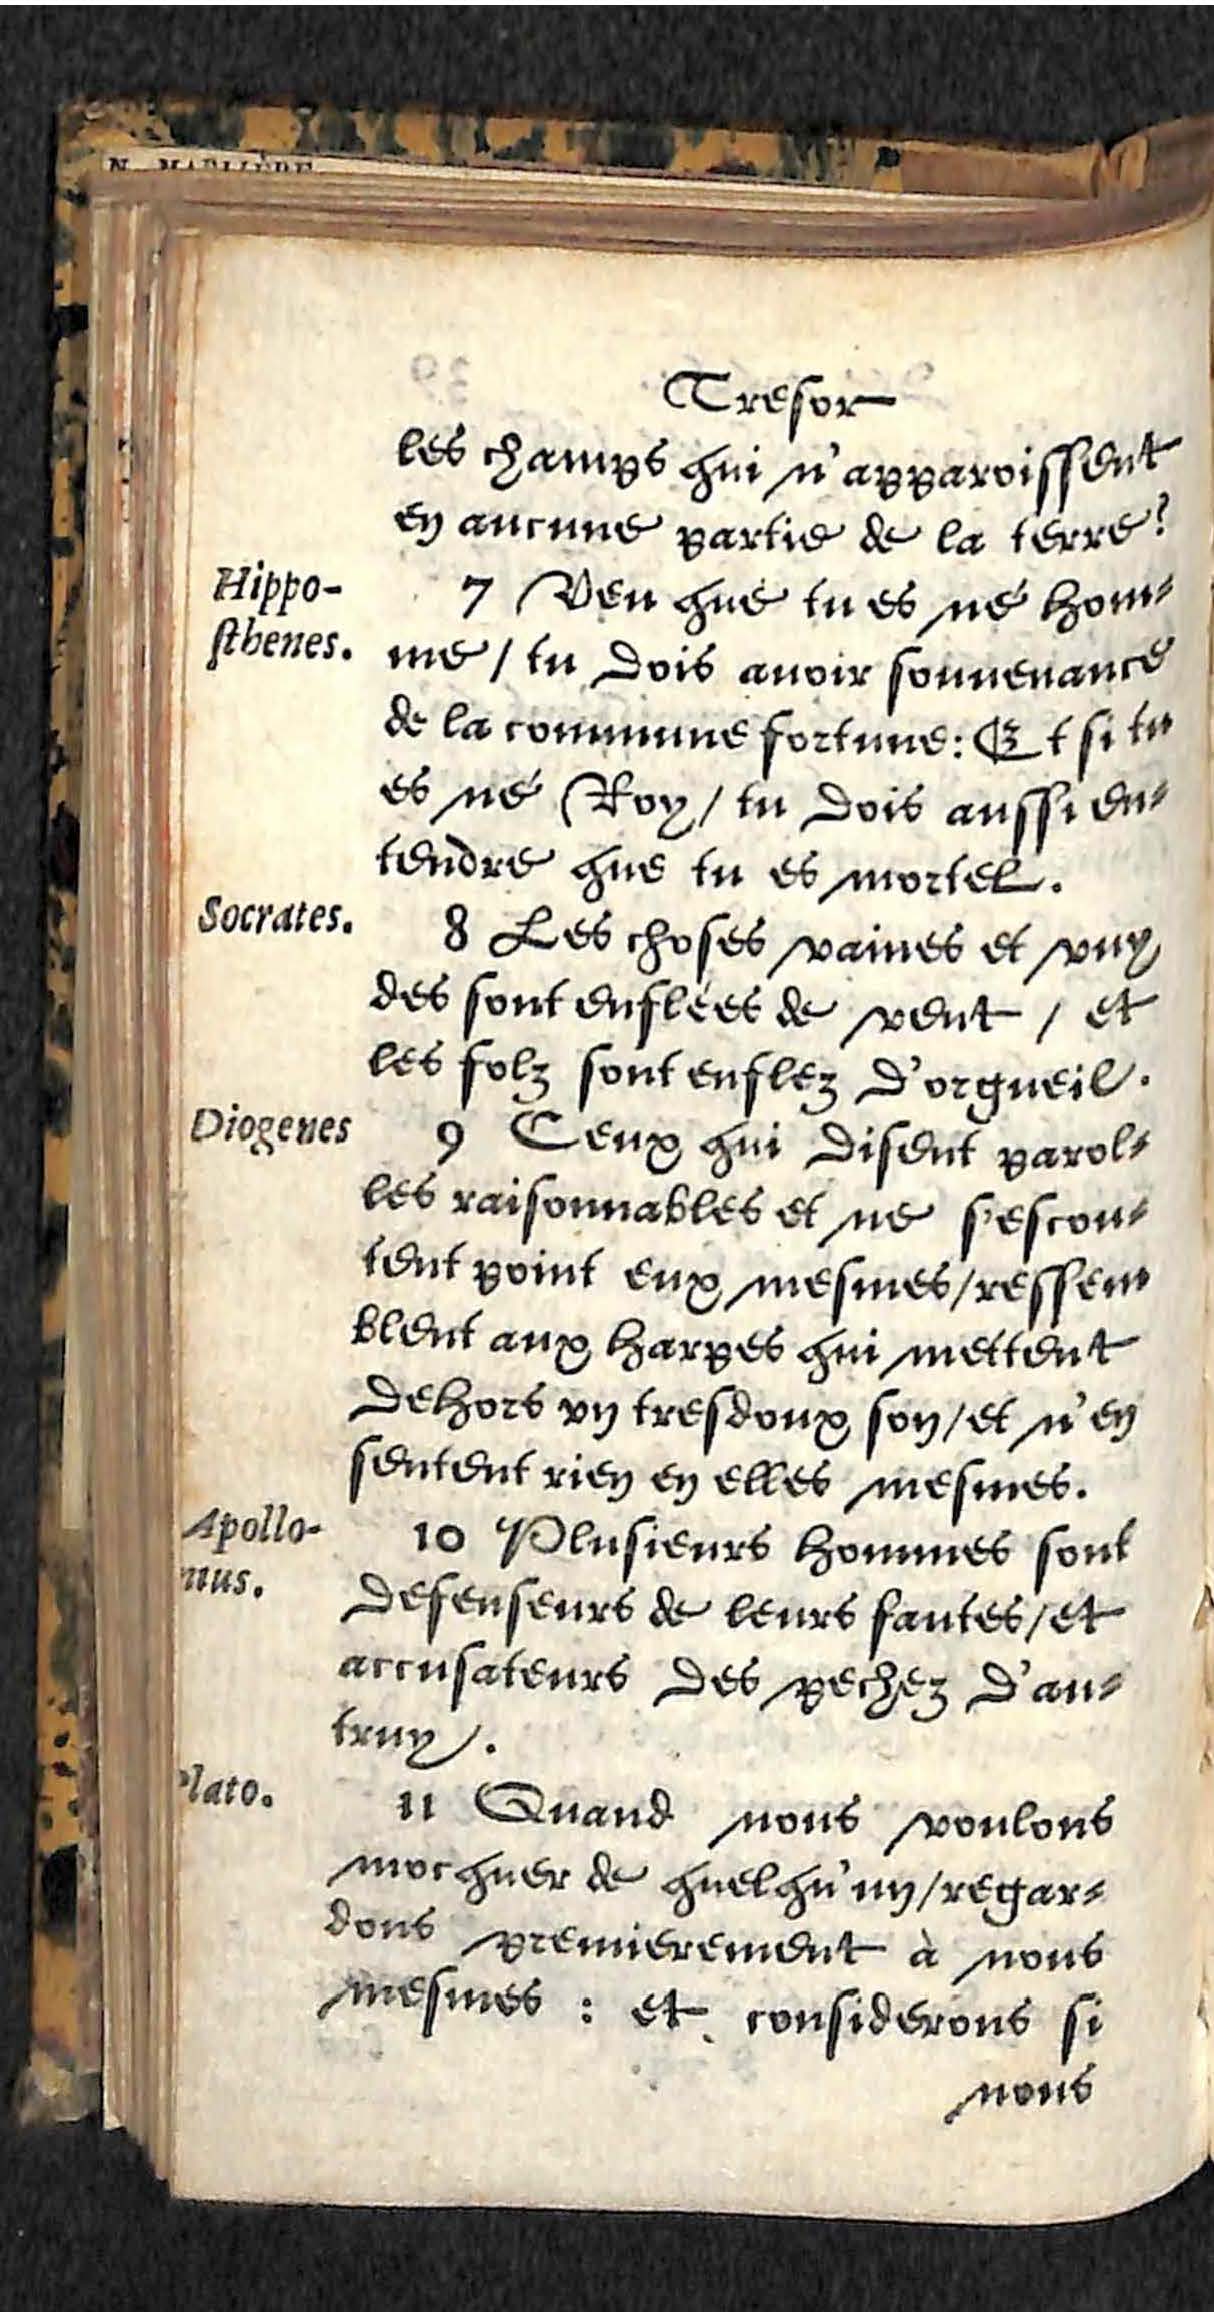 N. MARLIÈRE
Tresor
les champs qui n'apparoissent
en aucune partie de la terre?
Hippo-
sthenes.
7 Veu que tu es né hom-
me / tu dois auoir souuenance
de la commune fortune: Et si tu
es né Roy / tu dois aussi en-
tendre que tu es mortel.
Socrates.
8 Les choses vaines et vuy
des sont enflées de vent / et
les folz sont enflez d'orgueil.
Diogenes
9 Ceux qui disent parol-
les raisonnables et ne s'escou-
tent point eux mesmes / ressem
blent aux harpes qui mettent
dehors vn tresdoux son / et n'en
sentent rien en elles mesmes.
Apollo-
nius.
10 Plusieurs hommes sont
defenseurs de leurs fautes / et
accusateurs des pechez d'au-
truy.
Plato.
11 Quand nous voulons
mocquer de quelqu'un / regar-
dons premierement à nous
mesmes : et considerons si
nous